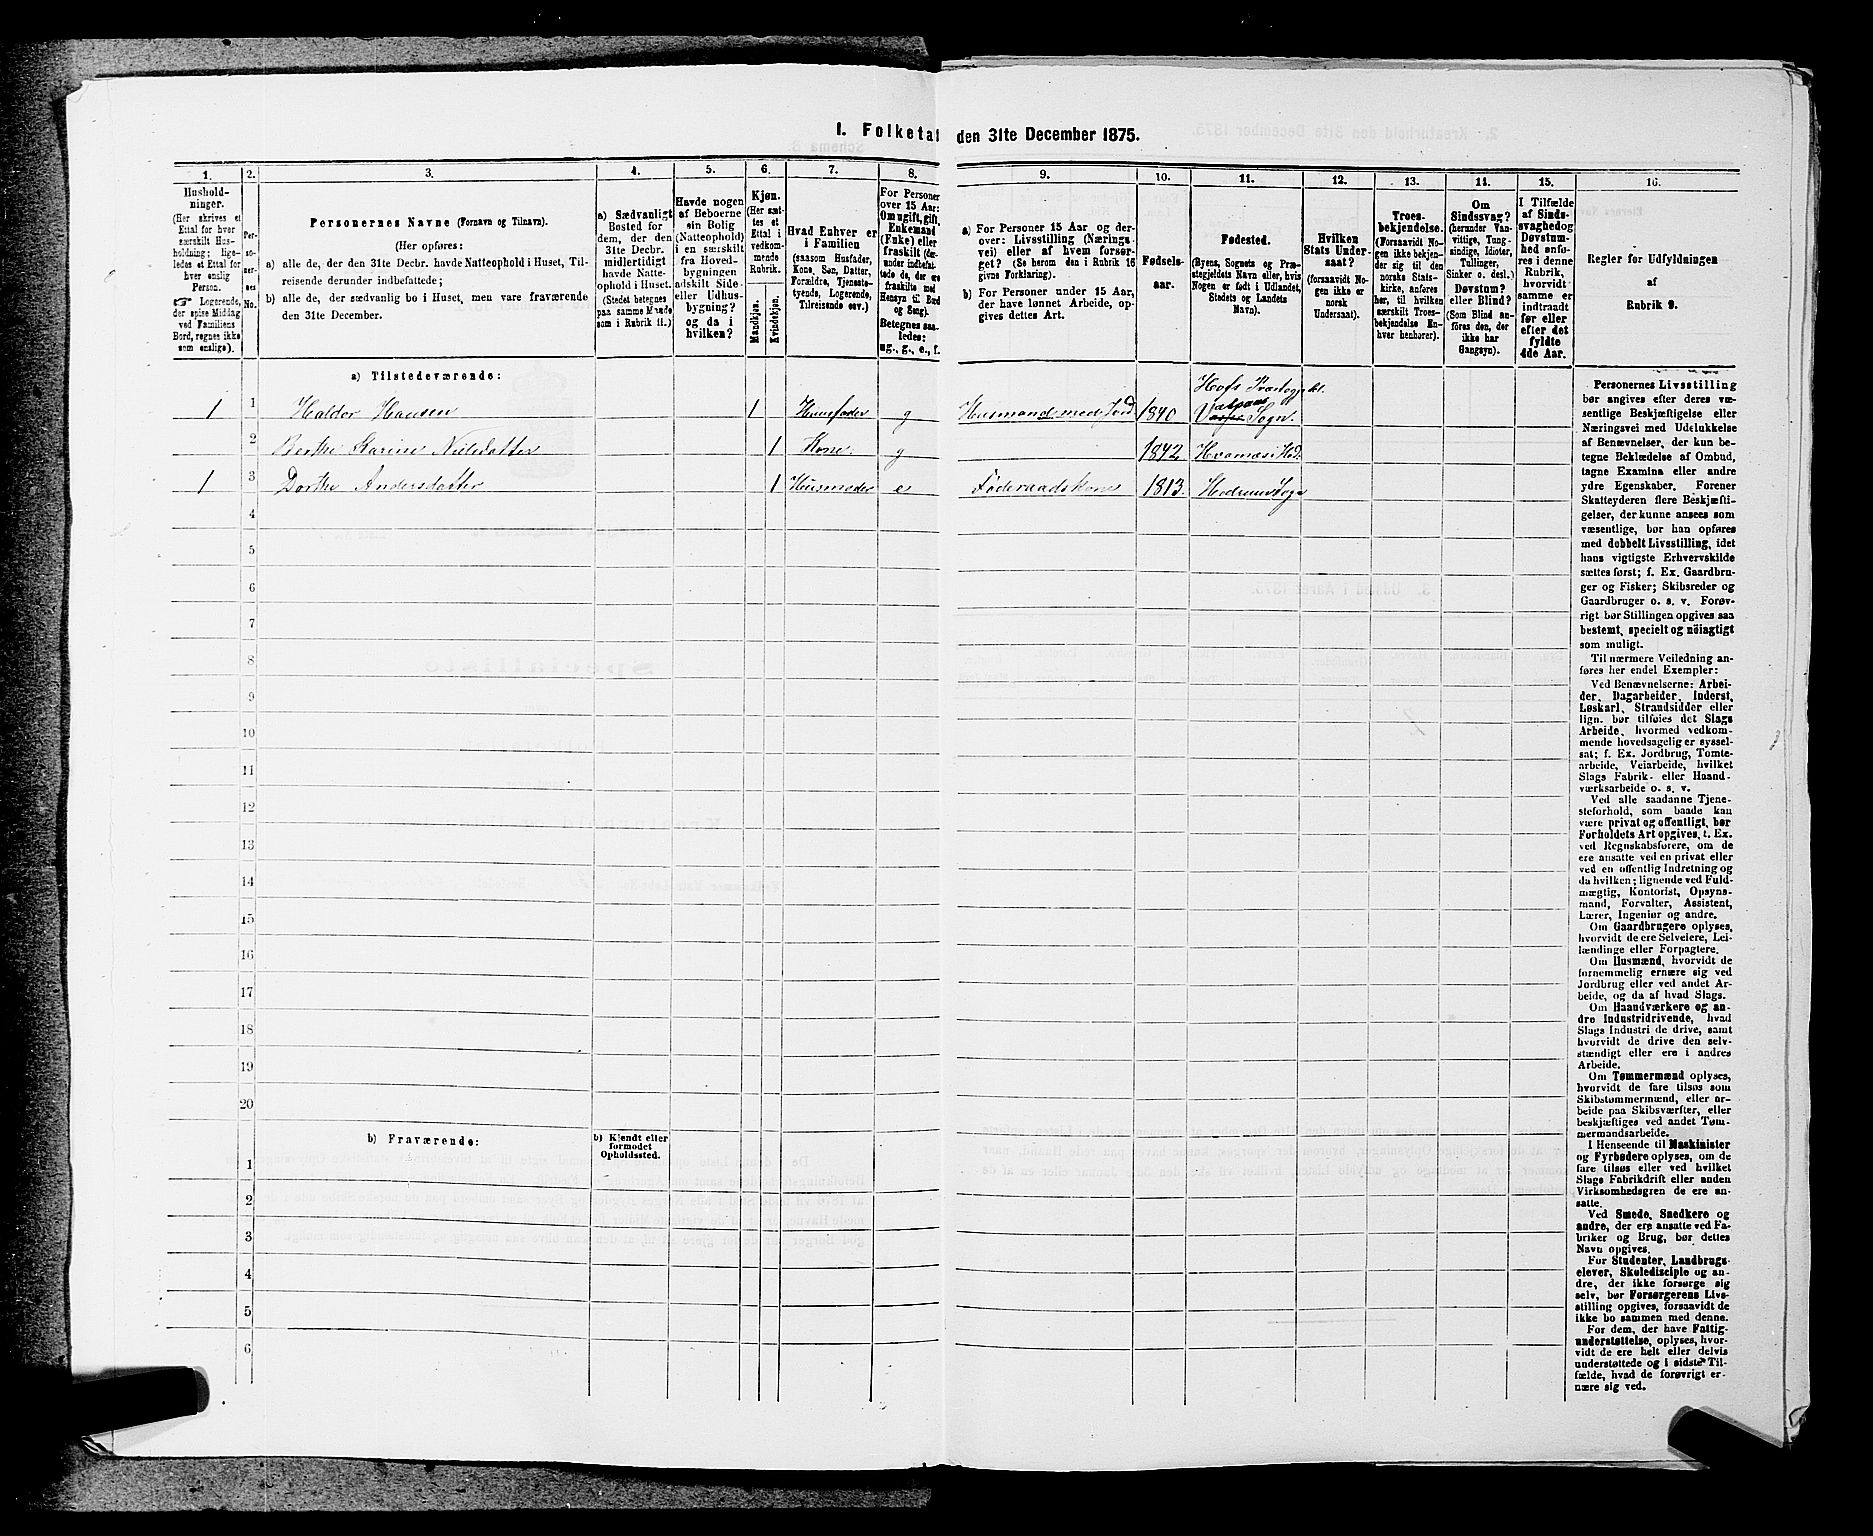 I. Folketal den 31te December 1875.
1. 2. 3. 4. 5. 6. 7. 8. 9. 10. 11. 12. 13. 14. 15. 16.
Hushold-
ninger.
(Her skrives et
Ettal for hver
særskilt Hus-
holdning; lige-
ledes et Ettal for
hver enslig
Person.
☞ Logerende,
der spise Middag
ved Familiens
Bord, regnes ikke
som enslige).
Per-
so-
ner-
nes
No.
Personernes Navne (Fornavn og Tilnavn).
(Her opføres:
a) alle de, der den 31te Decbr. havde Natteophold i Huset, Til-
reisende derunder indbefattede;
b) alle de, der sædvanlig bo i Huset, men vare fraværende
den 31te December.
a) Sædvanligt
Bosted for
dem, der den
31te Decbr.
midlertidigt
havde Natte-
ophold i Huset.
(Stedet betegnes
paa samme Maade
som i Rubrik 11.)
Havde nogen
af Beboerne
sin Bolig
(Natteophold)
i en særskilt
fra Hoved-
bygningen
adskilt Side-
eller Udhus-
bygning?
og da i
hvilken?
Kjøn.
(Her sæt-
tes et
Ettal i
vedkom-
mende
Rubrik.
Mandkjøn.
Kvindekjøn.
Hvad Enhver er
i Familien
(saasom Husfader,
Kone, Søn, Datter,
Forældre, Tjeneste-
tyende, Logerende,
Tilreisende osv.)
For Personer
over 15 Aar:
Om ugift, gift,
Enkemand
(Enke) eller
fraskilt (der-
under indbefat-
tede de, der ere
fraskilte med
Hensyn til Bord
og Seng).
Betegnes saa-
ledes:
ug., g., e., f.
a) For Personer 15 Aar og der-
over: Livsstilling (Nærings-
vei) eller af hvem forsør-
get? (Se herom den i Rubrik 16
givne Forklaring).
b) For Personer under 15 Aar,
der have lønnet Arbeide, op-
gives dettes Art.
Fødsels-
aar.
Fødested.
(Byens, Sognets og Præ-
stegjeldets Navn eller, hvis
Nogen er født i Udlandet,
Stedets og Landets
Navn).
Hvilken
Stats Under-
saat?
(forsaavidt No-
gen ikke er
norsk
Undersaat).
Troes-
bekjendelse.
(Forsaavidt No-
gen ikke bekjen-
der sig til den
norske Stats-
kirke, anføres
her, til hvilken
særskilt Troes-
bekjendelse En-
hver henhører).
Om
Sindssvag?
(herunder Van-
vittige, Tung-
sindige, Idioter,
Tullinger,
Sinker o. desl.)
Døvstum?
eller Blind?
(Som Blind an-
føres den, der
ikke har
Gangsyn).
I Tilfælde
af Sinds-
svaghed og
Døvstum-
hed anfø-
res i denne
Rubrik,
hvorvidt
samme er
indtraadt
før eller
efter det
fyldte
4de Aar.
Regler for Udfyldningen
af
Rubrik 9.
a) Tilstedeværende:
1 1 Halder Hansen 1 Huusfader g Husmand med Jord 1840 Hofs Præstegjeld. Vaspe Sogn.
2 Berthe Karine Nielsdatter 1 Kone g 1842
1 3 Dorthe Andersdatter 1 Husmoder e Føderaadskone 1813. Hedrum Sogn
4
5
6
7
8
9
10
11
12
13
14
15
16
17
18
19
20
b) Fraværende:
b) Kjendt eller
formodet
Opholdssted.
1
2
3
4
5
6
Personernes Livsstilling
bør angives efter deres væ-
sentlige Beskjæftigelse eller
Næringsvei med Udelukkelse
af Benævnelser, der kun be-
tegne Beklædelse af Ombud,
tagne Examina eller andre
ydre Egenskaber. Forener
Skatteyderen flere Beskjæfti-
gelser, der kunne ansees som
væsentlige, bør han opføres
med dobbelt Livsstilling, idet
hans vigtigste Erhvervskilde
sættes først; f. Ex. Gaardbru-
ger og Fisker; Skibsreder og
Gaardbruger o. s. v. Forøv-
rigt bør Stillingen opgives saa
bestemt, specielt og nöiagtigt
som muligt.
Til nærmere Veiledning an-
føres her endel Exempler:
Ved Benævnelserne: Arbei-
der, Dagarbeider, Inderst,
Løskarl, Strandsidder eller
lign. bør tilføies det Slags
Arbeide, hvormed vedkom-
mende hovedsagelig er syssel-
sat; f. Ex. Jordbrug, Tomte-
arbeide, Veiarbeide, hvilket
Slags Fabrik- eller Haand-
værksarbeide o. s. v.
Ved alle saadanne Tjene-
steforhold, som baade kan
være privat og offentligt, bør
Forholdets Art opgives, t. Ex.
ved Regnskabsførere, om de
ere ansatte ved en privat eller
ved en offentlig Indretning og
da hvilken; lignende ved Fuld-
mægtig, Kontorist, Opsyns-
mand, Forvalter, Assistent,
Lærer, Ingeniør og andre.
Om Gaardbrugere oplyses,
hvorvidt de ere Selveiere, Lei-
lændinge eller Forpagtere.
Om Husmænd, hvorvidt de
fornemmelig ernære sig ved
Jordbrug eller ved andet Ar-
beide, og da af hvad Slags.
Om Haandværkere og an-
dre Industridrivende, hvad
Slags Industri de drive, samt
hvorvidt de drive den selv-
stændigt eller ere i andres
Arbeide.
Om Tømmermænd oplyses,
hvorvidt de fare tilsøs som
Skibstømmermænd, eller ar-
beide paa Skibsværfter, eller
beskjæftiges ved andet Tøm-
mermandsarbeide.
I Henseende til Maskinister
og Fyrbødere oplyses, om de
fare tilsøs eller ved hvilket
Slags Fabrikdrift eller anden
Virksomhedsgren de ere an-
satte.
Ved Smede, Snedkere og
andre, der ere ansatte ved Fa-
briker og Brug, bør dettes
Navn opgives.
For Studenter, Landbrugs-
elever, Skoledisciple og an-
dre, der ikke forsørge sig
selv, bør Forsørgerens Livs-
stilling opgives, forsaavidt de
ikke bo sammen med denne.
For dem, der have Fattig-
understøttelse, oplyses, hvor-
vidt de ere helt eller delvis
understøttede og i sidste Til-
fælde, hvad de forøvrigt er-
nære sig ved.